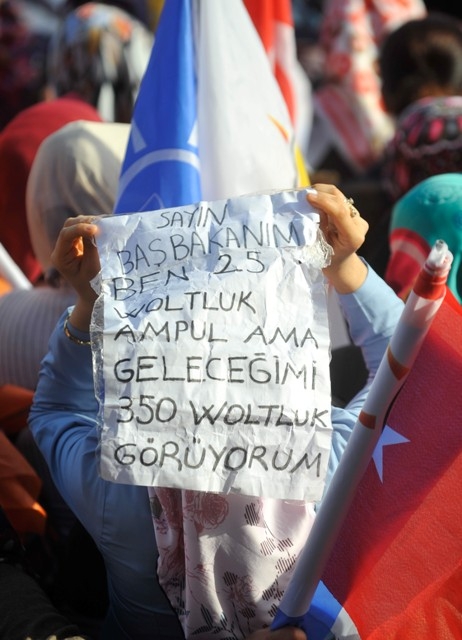 SAYIN
BAŞBAKANIM
BEN 25
WOLTLUK
AMPUL AMA
GELECEĞİMİ
350 WOLTLUK
GÖRÜYORUM